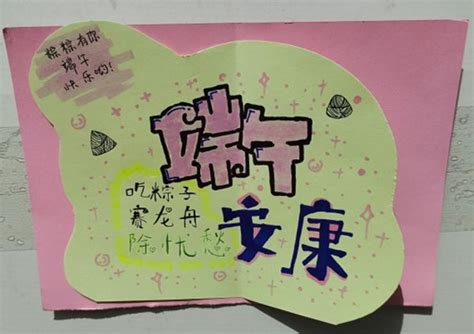 粽粽有你
端午
快乐哟!
端午
吃粽子
赛龙舟
除忧愁
安康